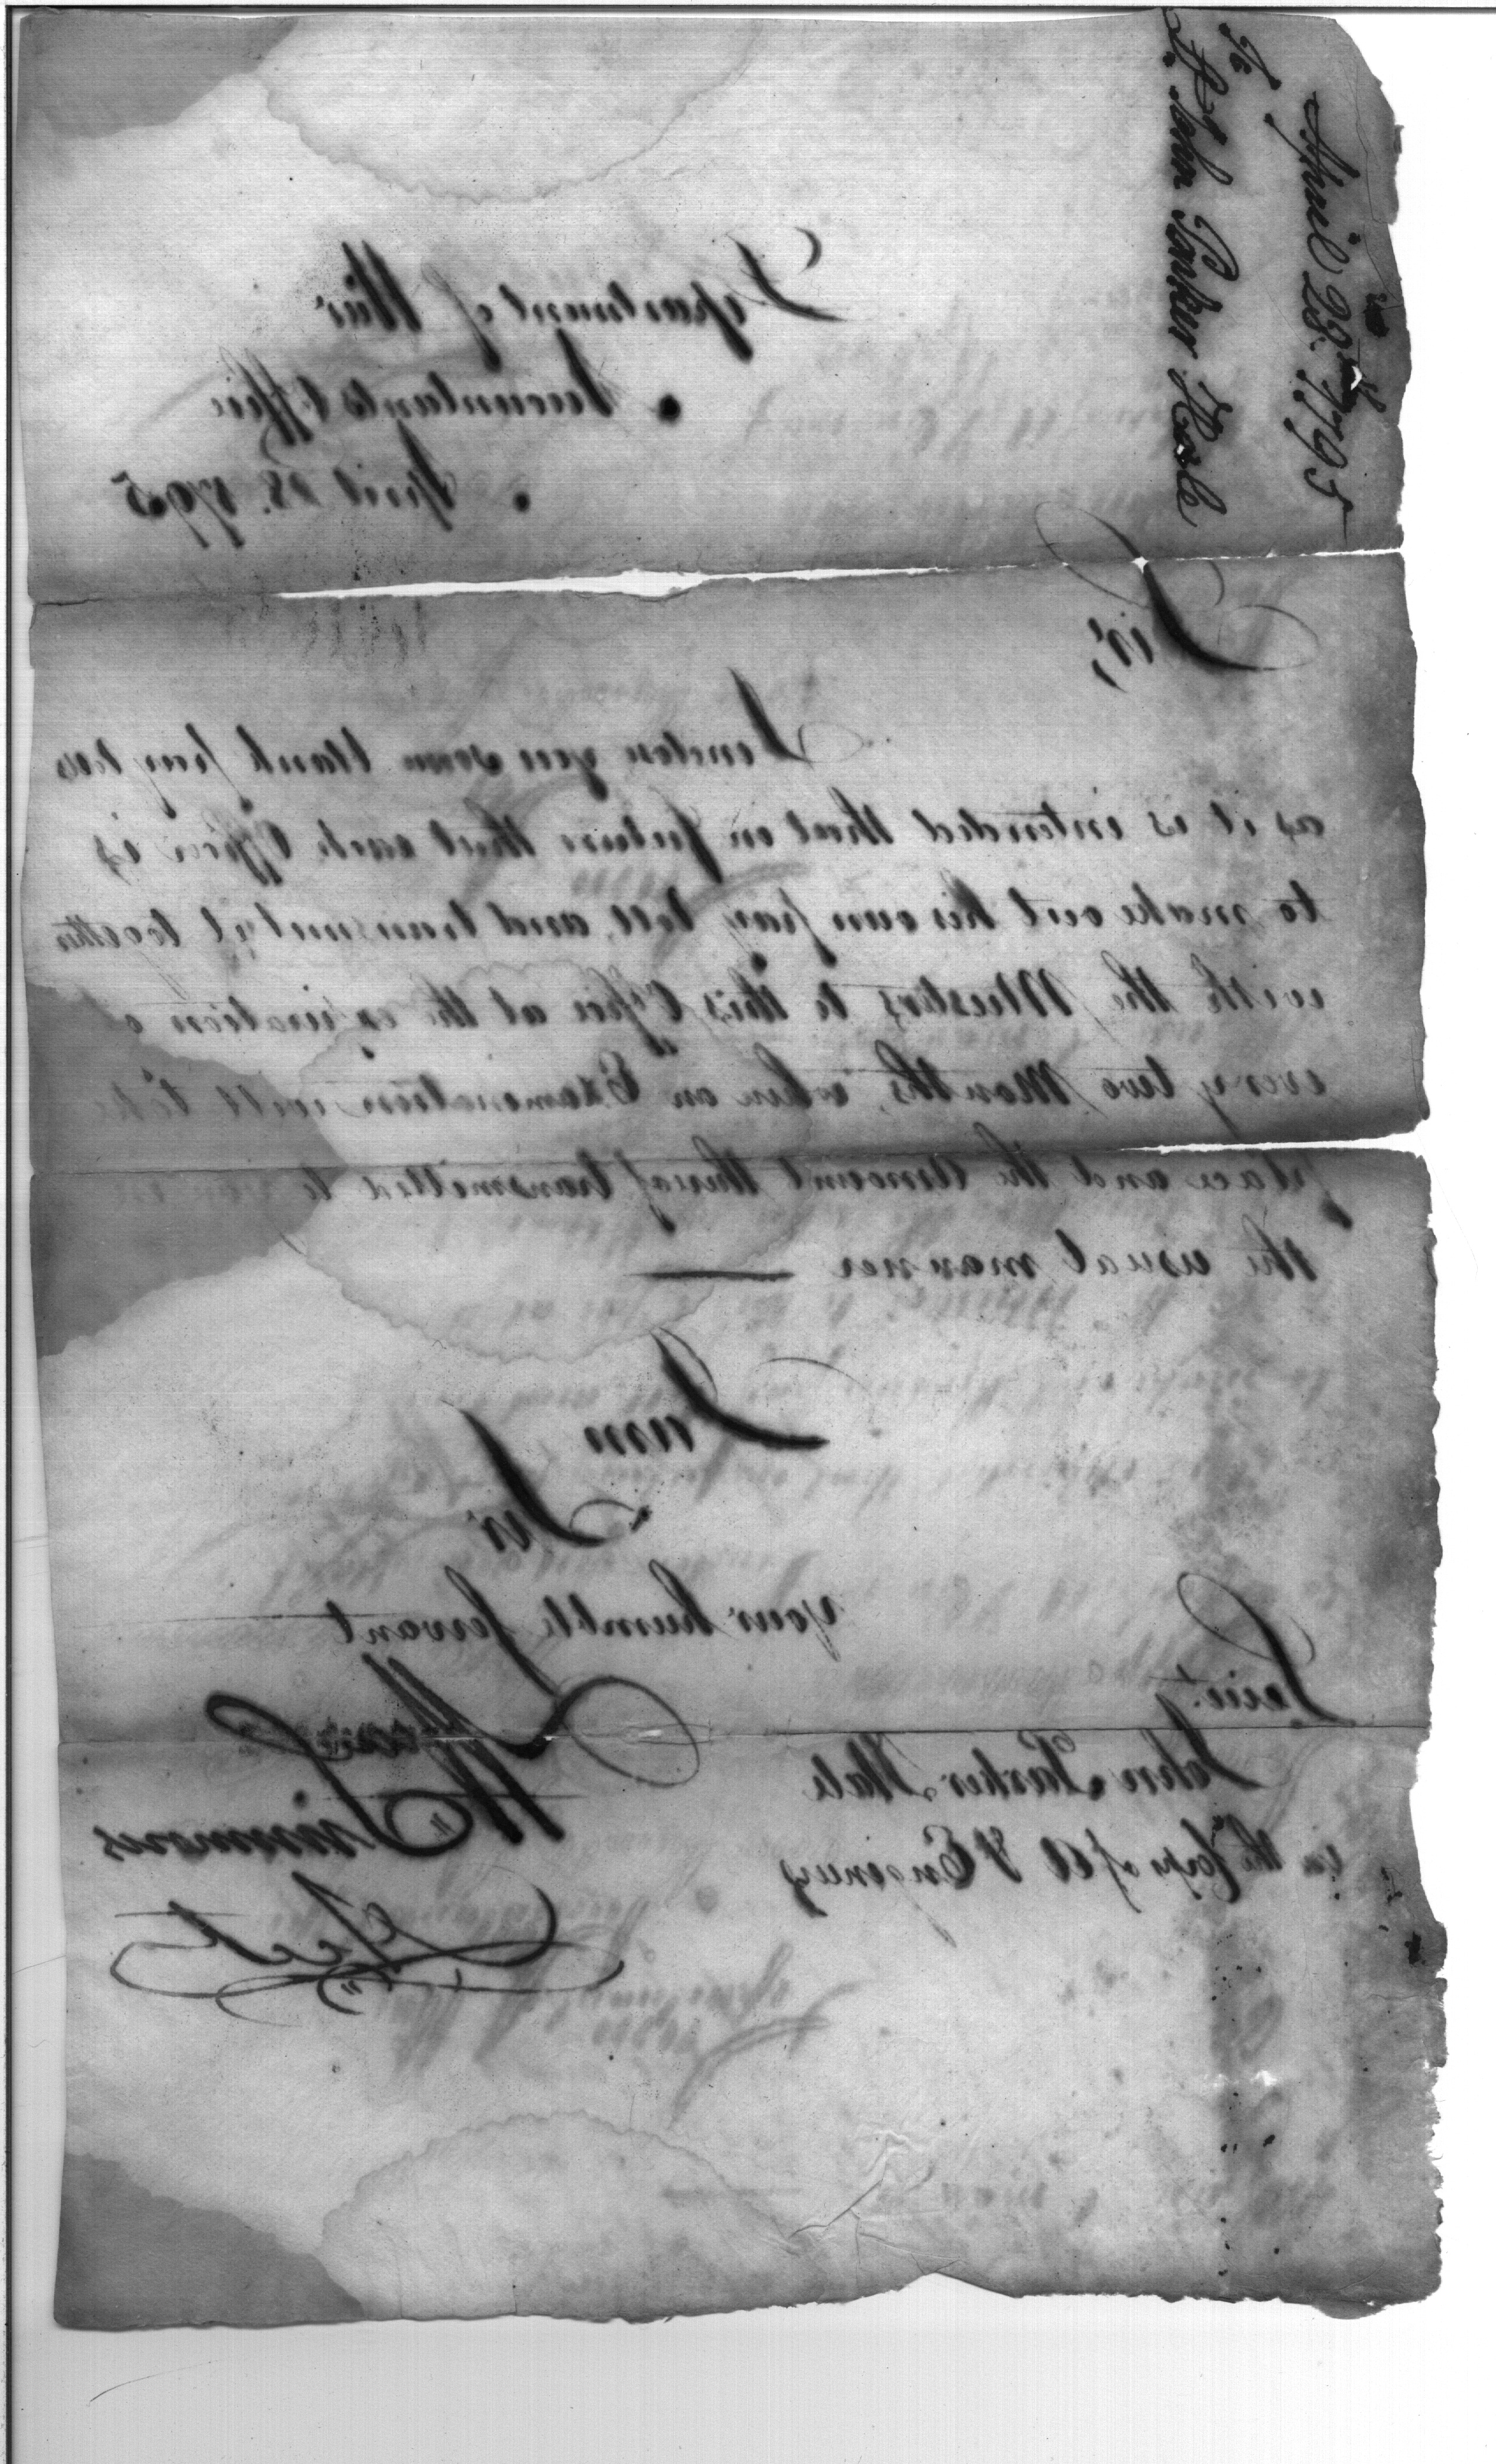 April 28th 1795
To
Lt. John Parker Hale
Department of War
Accountants Office
April 28. 1795
Sir,
I enclose you some blank pay rolls
as it is intended that in future that each Officer is
to make out his own pay roll and transmit it together
with the Musters to this Office at the expiration of
every two Months, when an Examination will take
place and the Amount thereof transmitted to you in
the usual manner —
I am
Sir
your humble servant
Wm Simmons
Acct
Lieut.
John Parker Hale
in the Corps of A & Engineers